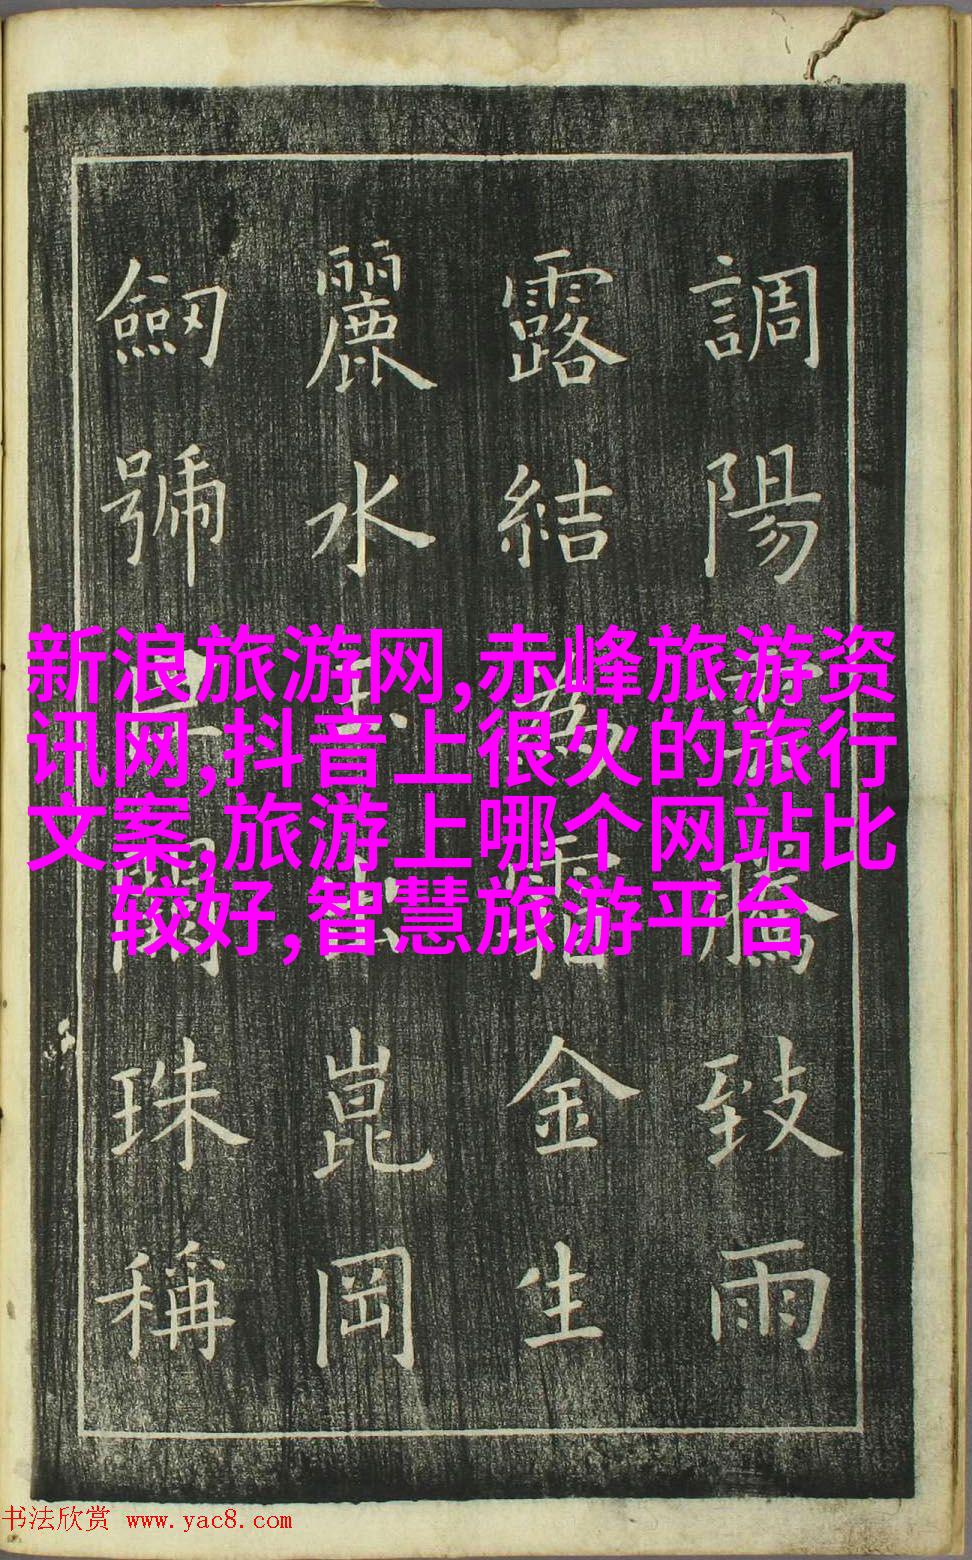 調陽雲騰致雨
露結為霜金生
麗水玉出崑岡
劒號巨闕珠稱
新浪旅游网,赤峰旅游资
讯网,抖音上很火的旅行
文案,旅游上哪个网站比
较好,智慧旅游平台
书法欣赏 www.yac8.com